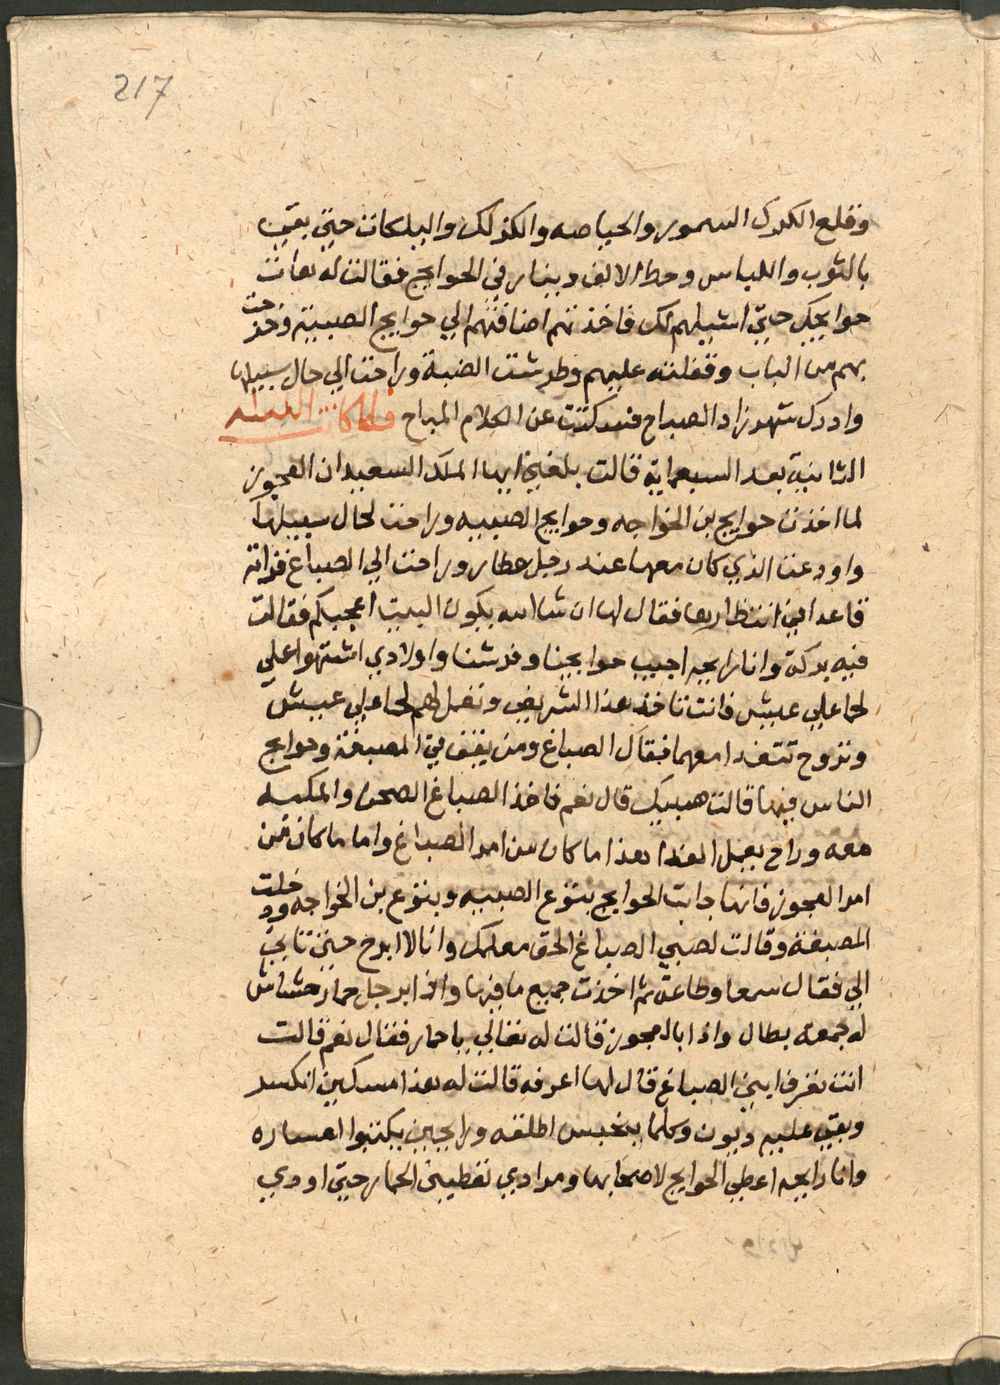 217
وقلع الكرك السمور والحياصه والكذلك والبلكات حتي بقي
بالثوب واللباس وحط الالف دينار في الحوايج فقالت له هات
حوايجك حتي اشيلهم لك فاخذتهم اضافتهم الي حوايج الصبية وخرجت
بهم من الباب وقفلته عليهم وطرشت الضبة وراحت الي حال سبيلها
وادرك شهرزاد الصباح فسكتت عن الكلام المباح فلما كانت الليلة
الثانية بعد السبعماية قالت بلغني ايها الملك السعيد ان العجوز
لما اخذت حوايج بن الخواجه وحوايج الصبيه وراحت لحال سبيلها
واودعت الذي كان معها عند رجل عطار وراحت الي الصباغ فراته
قاعد في انتظارها فقال لها ان شا الله يكون البيت اعجبكم فقالت
فيه بركة وانا رايحه اجيب حوايجنا وفرشنا واولادي اشتهوا علي
لحما علي عيش فانت تاخذ هذا الشريفي وتعمل لهم لحما علي عيش
وتروح تتغدا معهما فقال الصباغ ومن يقف في المصبغة وحوايج
الناس فيها قالت صبيك قال نعم فاخذ الصباغ الصحن والمكبه
معه وراح يعمل الغدا هذا ما كان من امر الصباغ واما ما كان من
امر العجوز فانها جابت الحوايج بتوع الصبيه وبتوع بن الخواجه ودخلت
المصبغة وقالت لصبي الصباغ الحق معلمك وانا لا ابرح حتي تاتي
الي فقال سمعا وطاعة ثم اخذت جميع ما فيها واذا برجل حمار حشاش
له جمعه بطال واذا بالعجوز قالت له تعالي يا حمار فقال نعم قالت
انت تعرف ابني الصباغ قال لها اعرفه قالت له هذا مسكين انكسر
وبقي عليه ديون وكلما ينحبس اطلقه ورايحين يكتبوا اعساره
وانا رايحه اعطي الحوايج لاصحابها ومرادي تعطيني الحمار حتي اودي